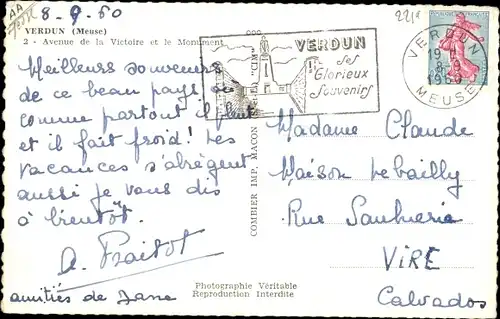 8-9-60
VERDUN (Meuse)
2 - Avenue de la Victoire et le Monument
Meilleurs souvenirs
de ce beau pays où
comme partout il pleut
et il fait froid! Les
vacances s'abrègent
aussi je vous dis
à bientôt.
amitiés de Jane
COMBIER IMP. MACON "CIM"
VERDUN
Ses
Glorieux
Souvenirs
VERDUN
8-9
1960
MEUSE
Madame Claude
Maison Lebailly
Rue Saulnerie
VIRE
Calvados
Photographie Véritable
Reproduction Interdite